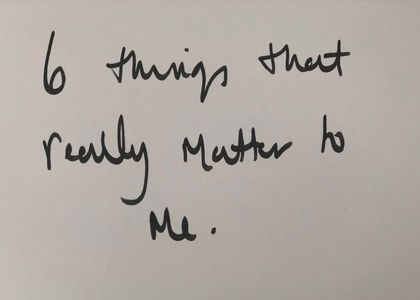 6 things that
really Matter to
Me.